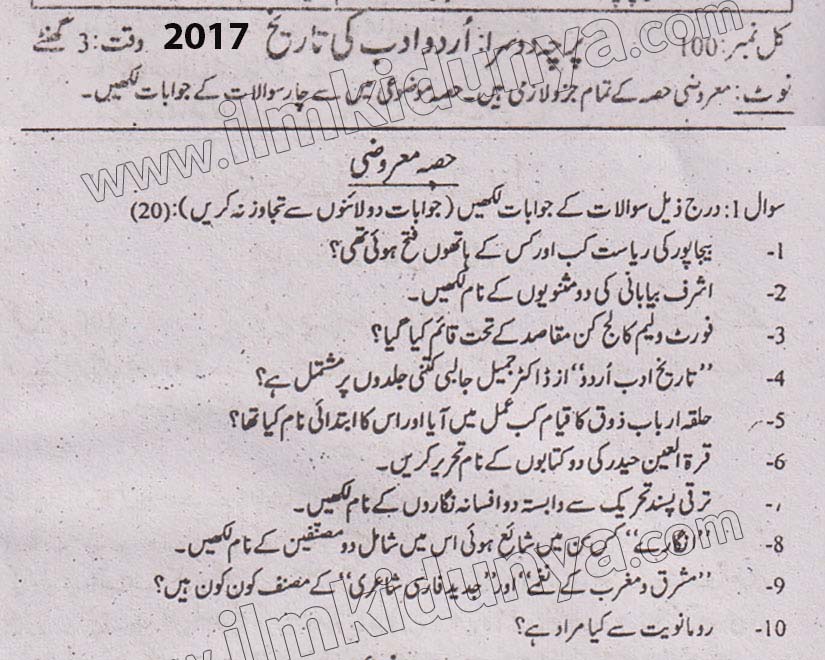 کل نمبر: 100 پرچہ دوسرا: اُردو ادب کی تاریخ 2017 وقت: 3 گھنٹے
نوٹ: معروضی حصہ کے تمام جزو لازمی ہیں۔ حصہ موضوعی میں سے چار سوالات کے جوابات لکھیں۔
حصہ معروضی
سوال 1: درج ذیل سوالات کے جوابات لکھیں (جوابات دو لائنوں سے تجاوز نہ کریں): (20)
1- بیجاپور کی ریاست کب اور کس کے ہاتھوں فتح ہوئی تھی؟
2- اشرف بیابانی کی دو مثنویوں کے نام لکھیں۔
3- فورٹ ولیم کالج کن مقاصد کے تحت قائم کیا گیا؟
4- "تاریخ ادب اُردو" از ڈاکٹر جمیل جالبی کتنی جلدوں پر مشتمل ہے؟
5- حلقہ ارباب ذوق کا قیام کب عمل میں آیا اور اس کا ابتدائی نام کیا تھا؟
6- قرۃ العین حیدر کی دو کتابوں کے نام تحریر کریں۔
ترقی پسند تحریک سے وابستہ دو افسانہ نگاروں کے نام لکھیں۔
8- "انگارے" کس سن میں شائع ہوئی اس میں شامل دو مصنفین کے نام لکھیں۔
9- "مشرق و مغرب کے نغمے" اور "جدید فارسی شاعری" کے مصنف کون کون ہیں؟
10- رومانویت سے کیا مراد ہے؟
www.ilmkidunya.com
www.ilmkidunya.com